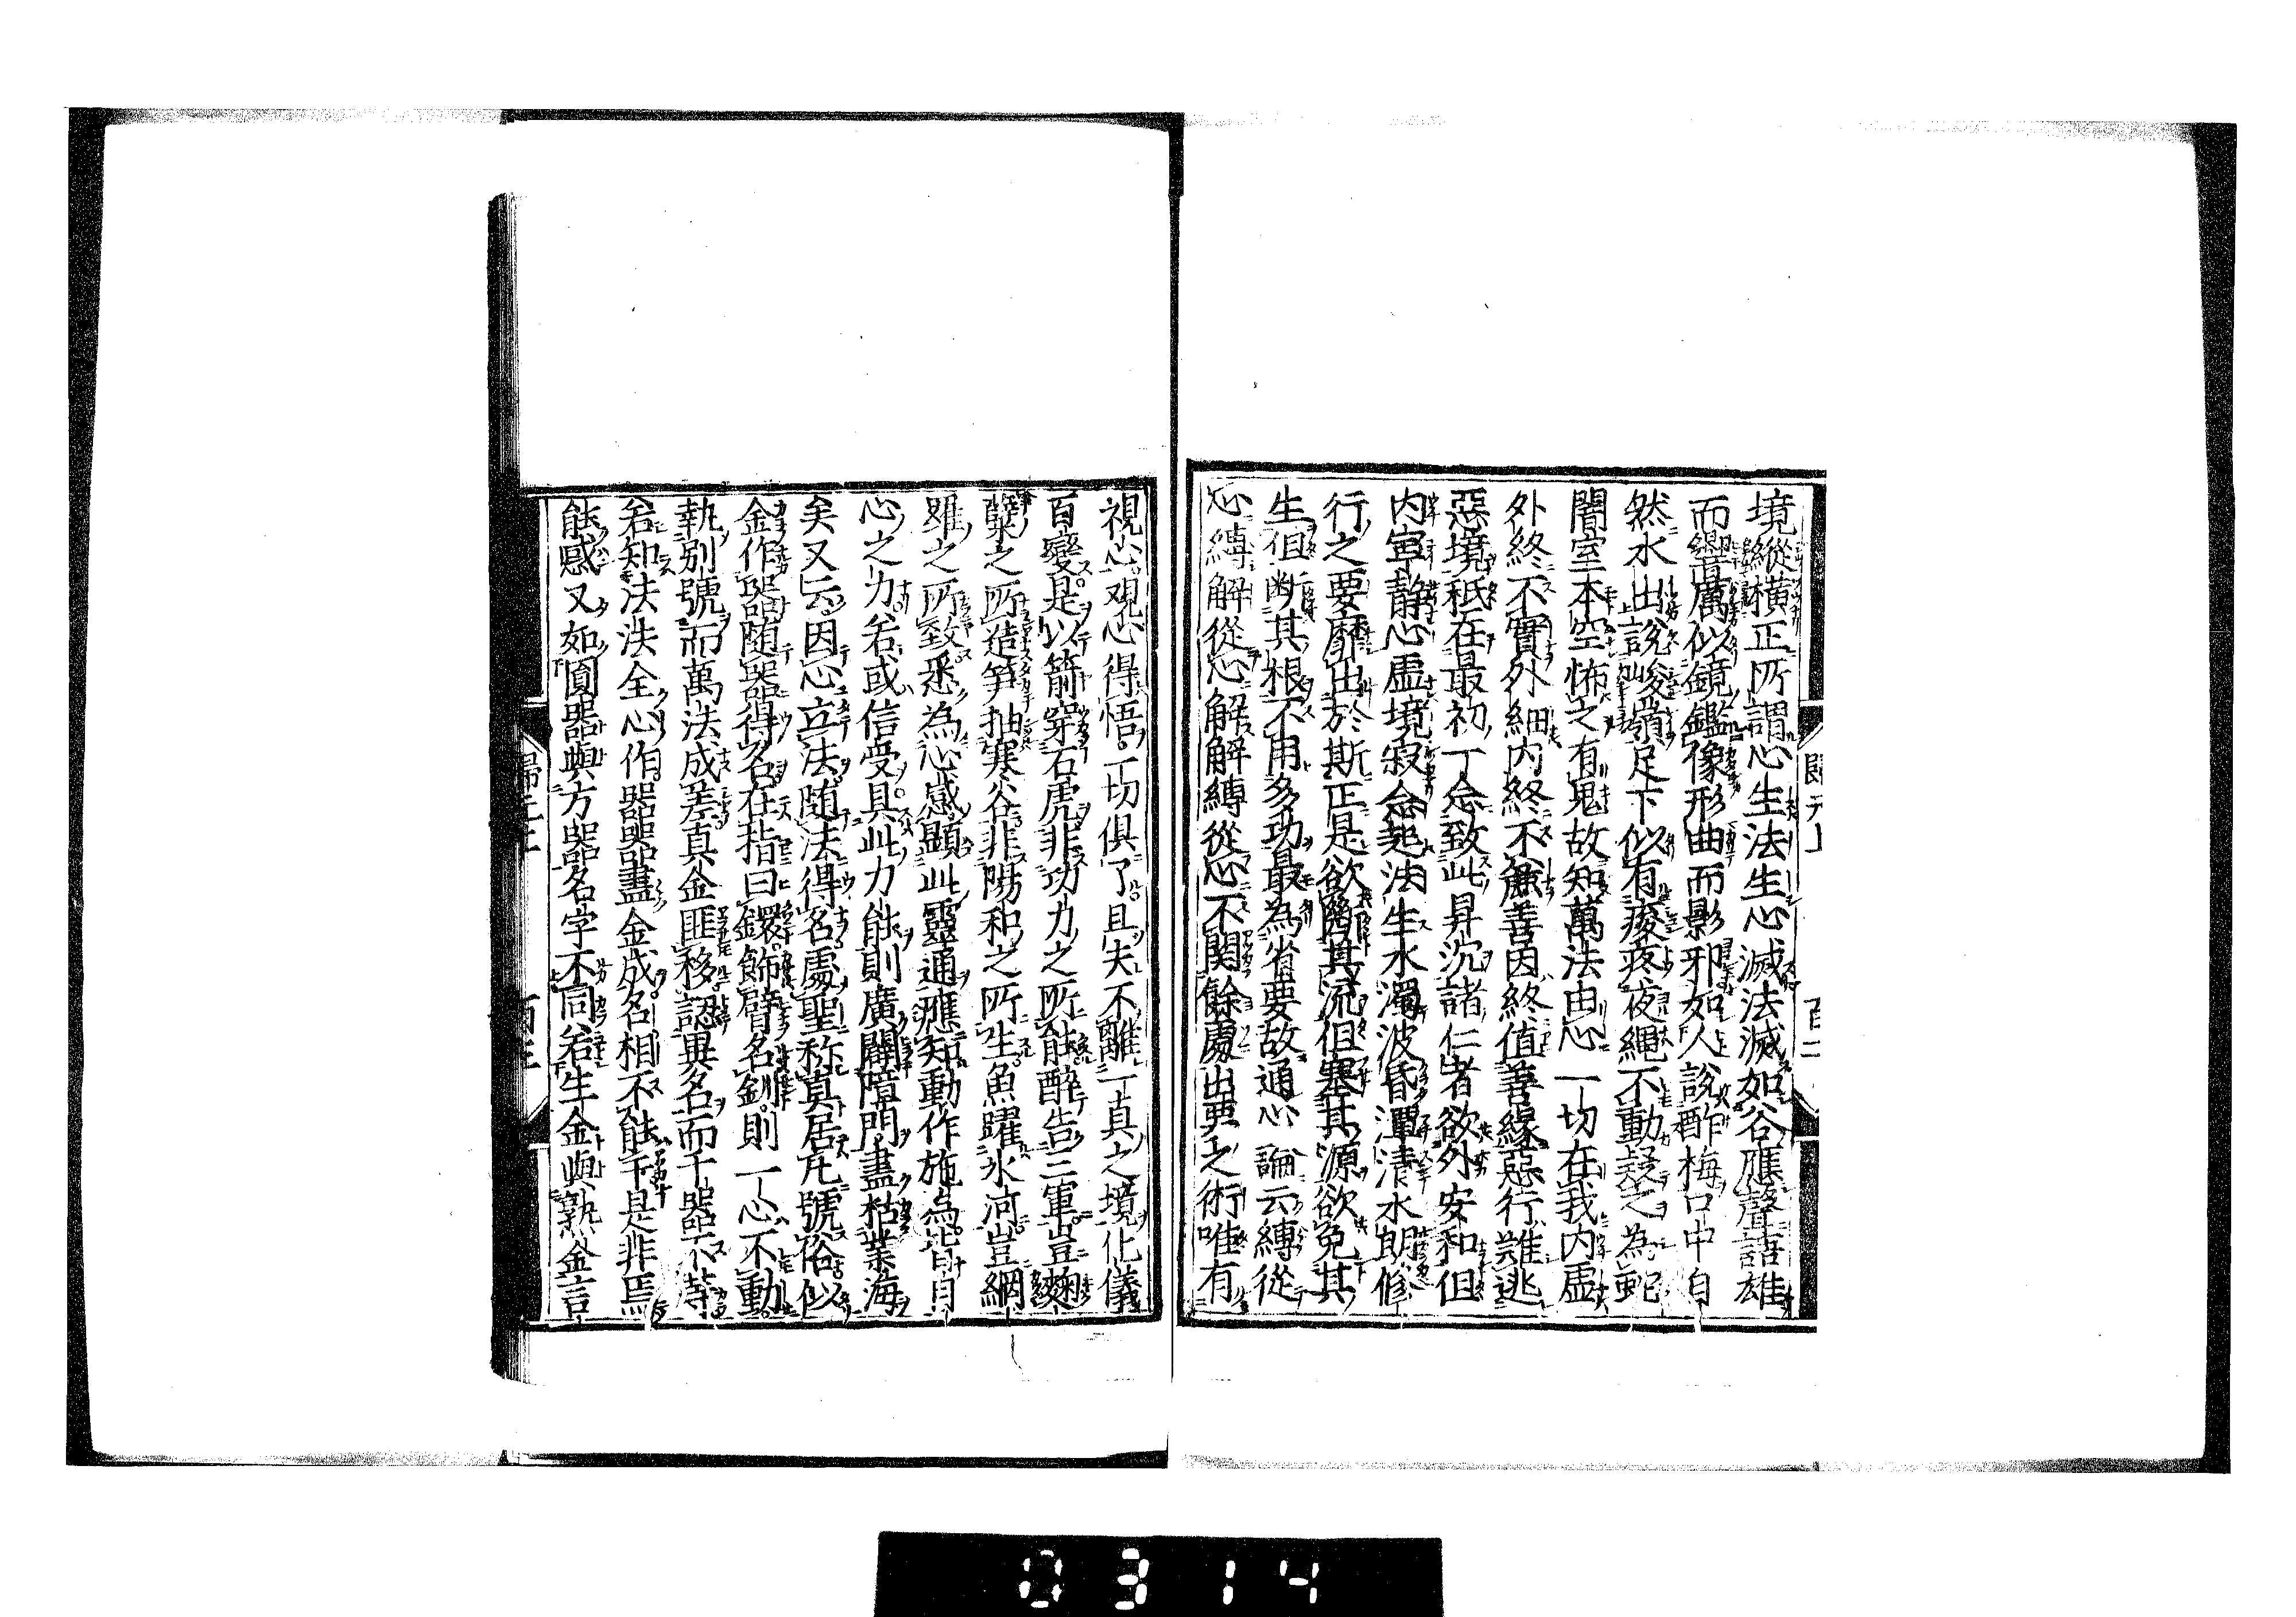 境縱橫正所謂心生法生心滅法滅如谷應聲語雄
而響厲似鏡鑑像形曲而影邪如人說酢梅口中自
然水出說峻嶺足下似有痠疼夜繩不動疑之為蛇
闇室本空怖之有鬼故知萬法由心一切在我內虛
外終不實外細內終不麁善因終值善緣惡行難逃
惡境秖在最初一念致此昇沉諸仁者欲外安和但
內寧靜心虛境寂念起法生水濁波昏潭清水朗修
行之要靡出於斯正是欲隔其流但塞其源欲免其
生但斷其根不用多功最為省要故通心論云縛從
心縛解從心解解縛從心不關餘處出要之術唯有
視心觀心得悟一切俱了且夫不離一真之境化儀
百變是以箭穿石虎非功力之所能醉告三軍豈麴
糵之所造笋抽寒谷非陽和之所生魚躍氷河豈網
羅之所致悉為心感顯此靈通應知動作施為皆自
心之力若或信受具此力能則廣闢障門盡枯業海
矣又云因心立法隨法得名處聖称真居凡號俗似
金作器隨器得名在指曰鐶飾臂名釧則一心不動
執別號而萬法成差真金匪移認異名而千器不等
若知法法全心作器器盡金成名相不能干是非焉
能惑又如圓器與方器名字不同若生金與熟金言
百二
0314